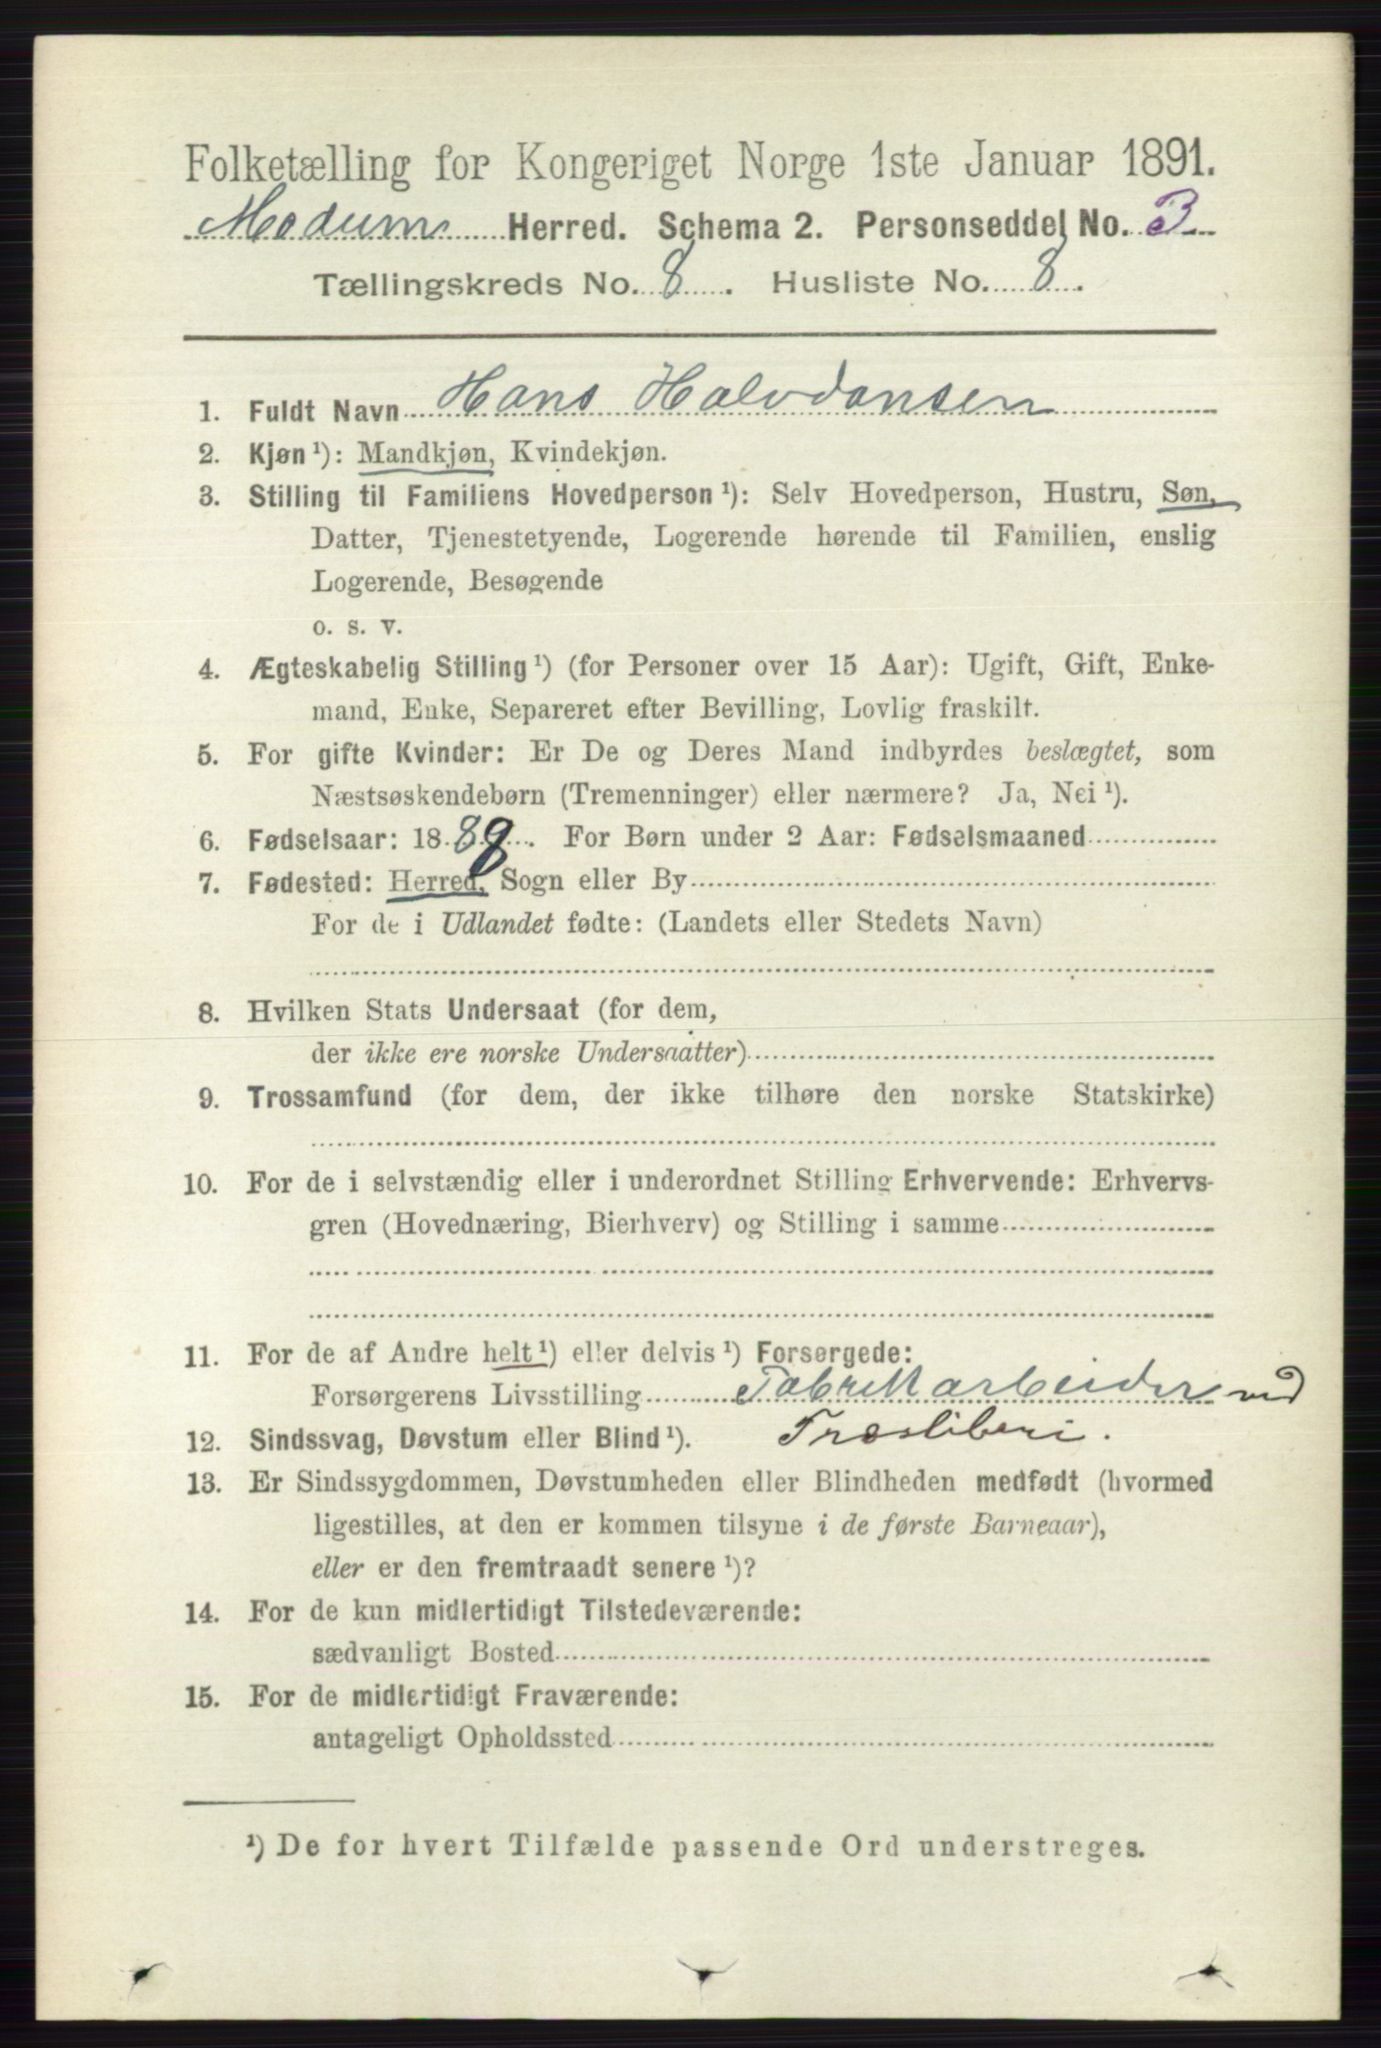 Folketælling for Kongeriget Norge 1ste Januar 1891.
Modum Herred. Schema 2. Personseddel No. 3
Tællingskreds No. 8. Husliste No. 8.
1. Fuldt Navn Hans Halvdansen
2. Kjøn¹): Mandkjøn, Kvindekjøn.
3. Stilling til Familiens Hovedperson¹): Selv Hovedperson, Hustru, Søn,
Datter, Tjenestetyende, Logerende hørende til Familien, enslig
Logerende, Besøgende
o. s. v.
4. Ægteskabelig Stilling¹) (for Personer over 15 Aar): Ugift, Gift, Enke-
mand, Enke, Separeret efter Bevilling, Lovlig fraskilt.
5. For gifte Kvinder: Er De og Deres Mand indbyrdes beslægtet, som
Næstsøskendebørn (Tremenninger) eller nærmere? Ja, Nei¹).
6. Fødselsaar: 1888. For Børn under 2 Aar: Fødselsmaaned
7. Fødested: Herred, Sogn eller By
For de i Udlandet fødte: (Landets eller Stedets Navn)
8. Hvilken Stats Undersaat (for dem,
der ikke ere norske Undersaatter)
9. Trossamfund (for dem, der ikke tilhøre den norske Statskirke)
10. For de i selvstændig eller i underordnet Stilling Erhvervende: Erhvervs-
gren (Hovednæring, Bierhverv) og Stilling i samme
11. For de af Andre helt¹) eller delvis¹) Forsørgede:
Forsørgerens Livsstilling Fabrikarbeider ved
12. Sindssvag, Døvstum eller Blind¹). Træsliberi.
13. Er Sindssygdommen, Døvstumheden eller Blindheden medfødt (hvormed
ligestilles, at den er kommen tilsyne i de første Barneaar),
eller er den fremtraadt senere¹)?
14. For de kun midlertidigt Tilstedeværende:
sædvanligt Bosted
15. For de midlertidigt Fraværende:
antageligt Opholdssted
¹) De for hvert Tilfælde passende Ord understreges.